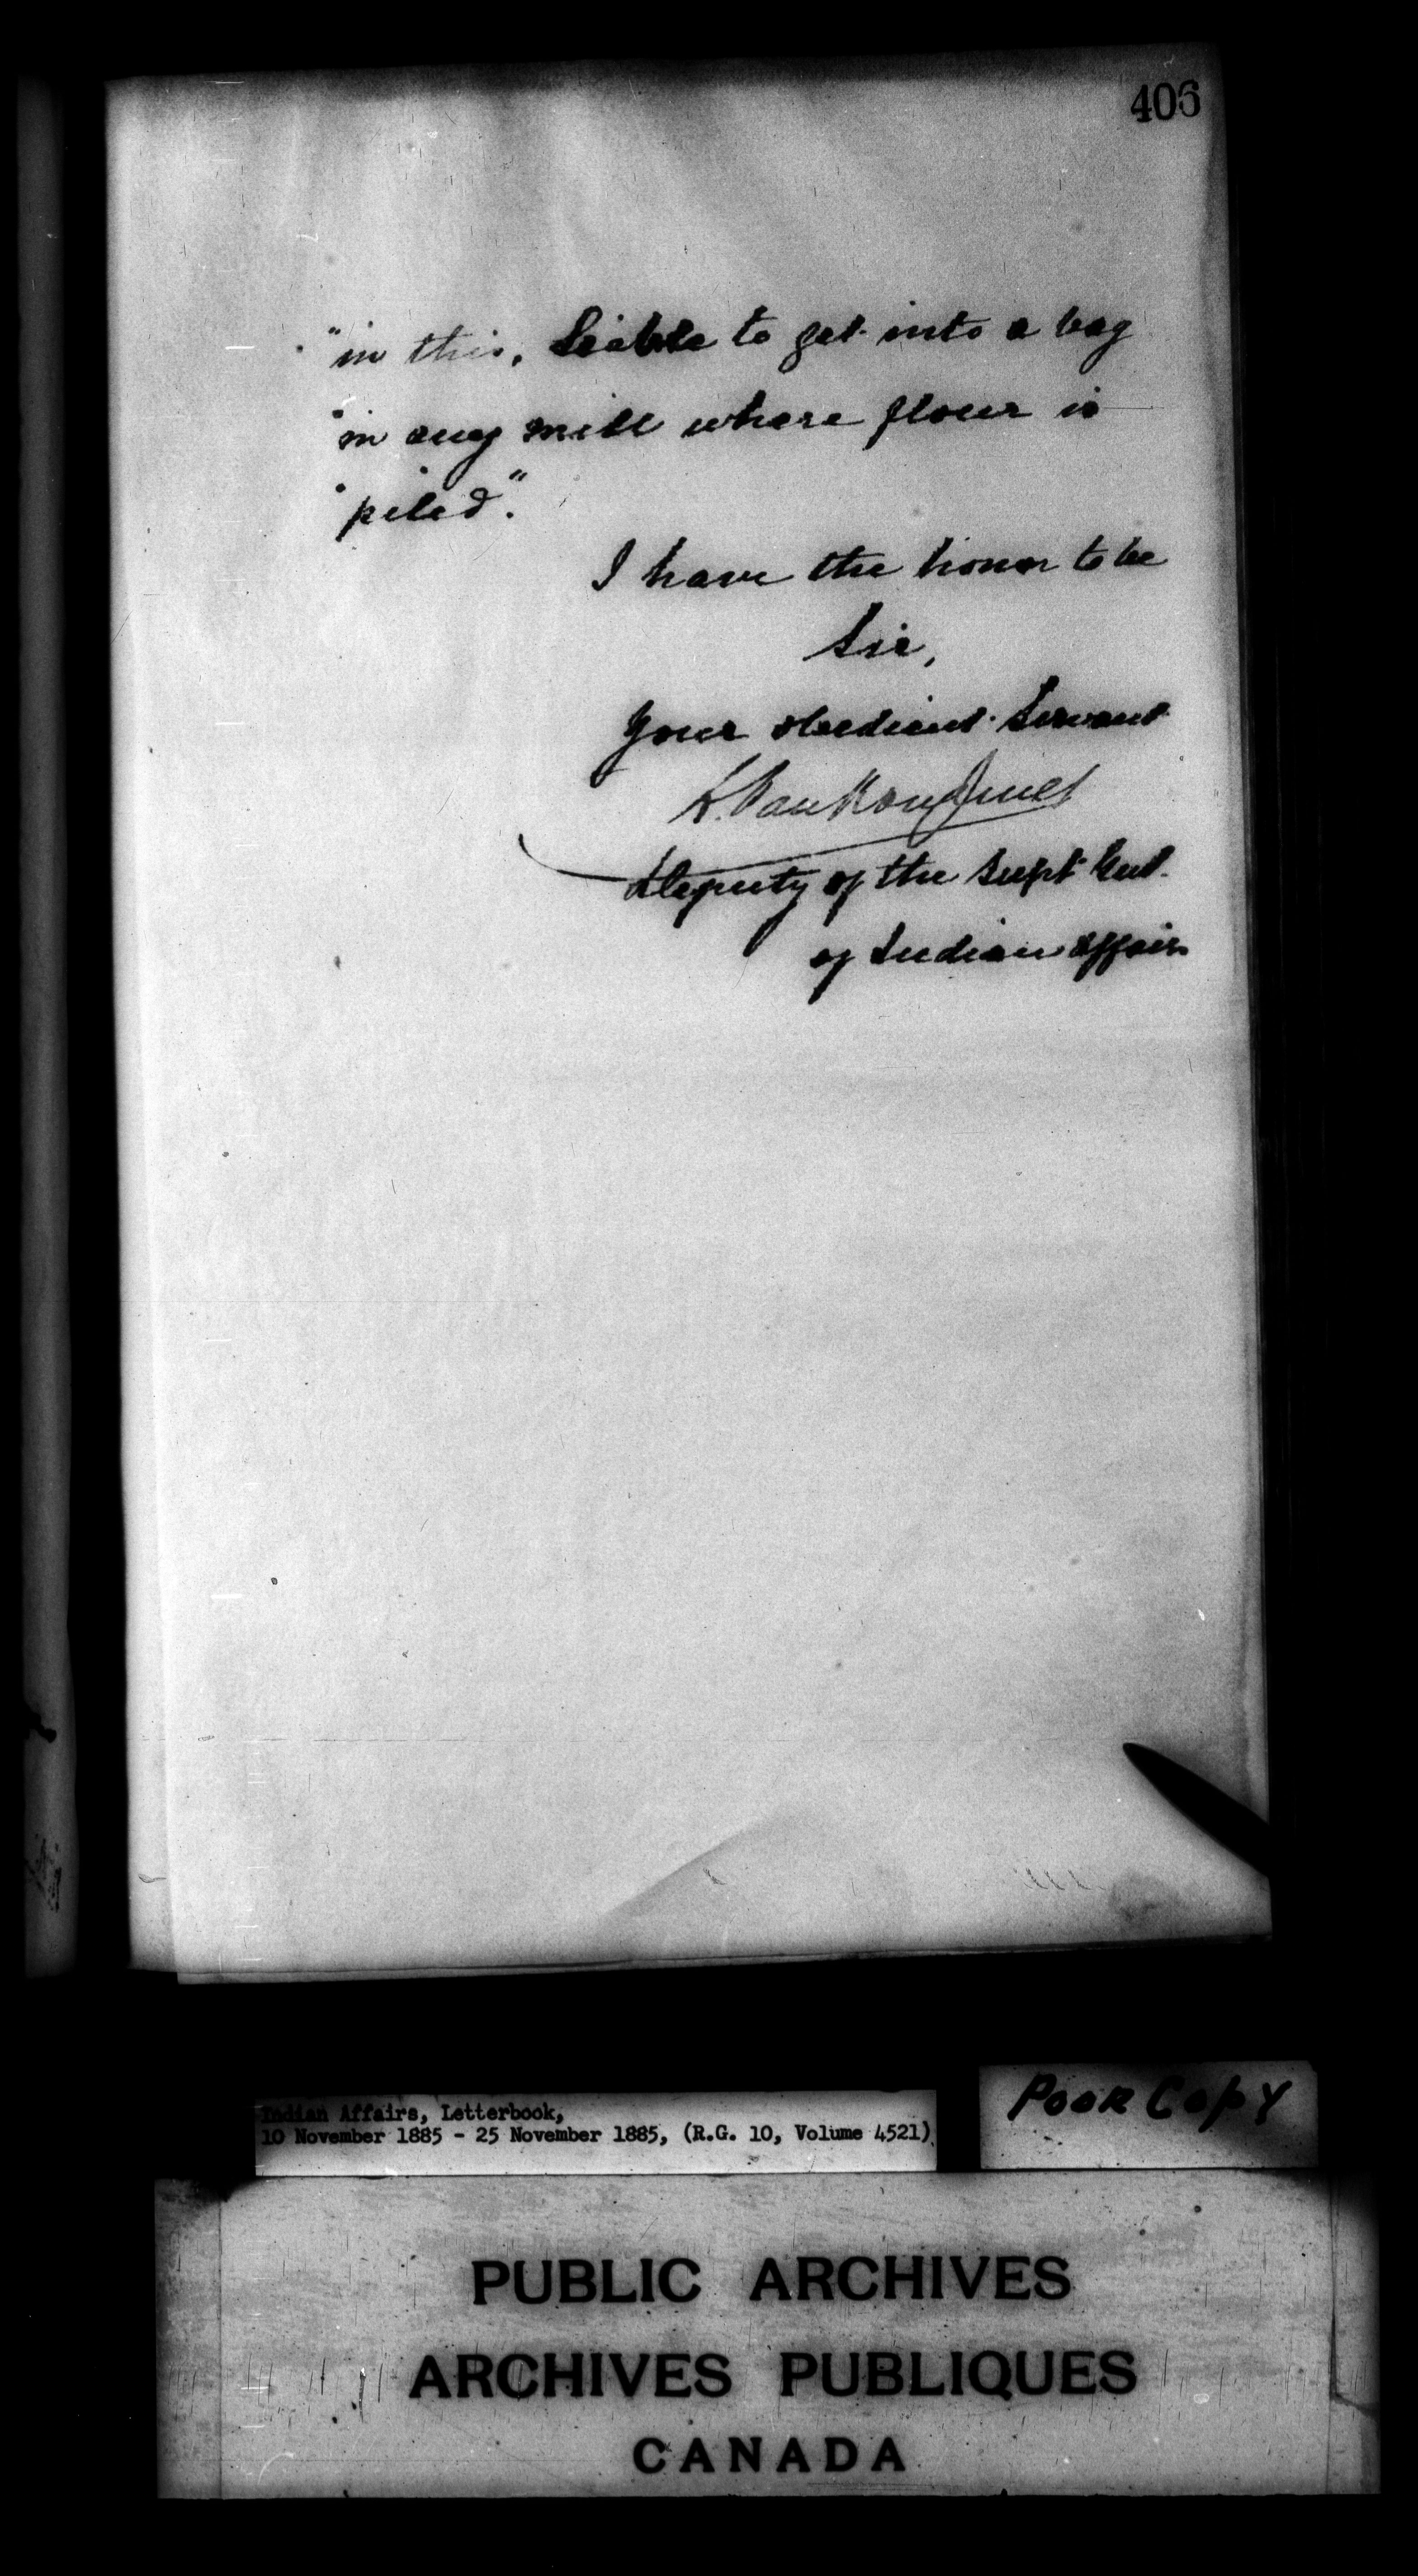 406
"in this, liable to get into a bag
"in any mill where flour is
"piled."
I have the honor to be
Sir,
Your obedient Servant
L. VanKoughnet
Deputy of the Supt Genl.
of Indian Affairs
Indian Affairs, Letterbook,
10 November 1885 - 25 November 1885, (R.G. 10, Volume 4521)
POOR COPY
PUBLIC ARCHIVES
ARCHIVES PUBLIQUES
CANADA